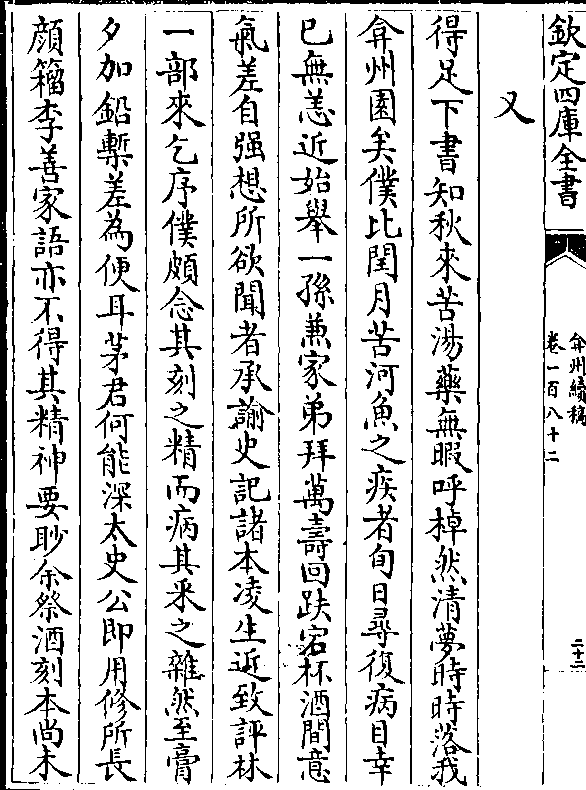 欽定四庫全書
弇州續稿
卷一百八十二
二十二
又
得足下書知秋來苦湯藥無暇呼棹然清夢時時落我
弇州園矣僕比閏月苦河魚之疾者旬日尋復病目幸
已無恙近始舉一孫兼家弟拜萬壽回趺宕杯酒間意
氣差自强想所欲聞者承諭史記諸本凌生近致評林
一部來乞序僕頗念其刻之精而病其采之雜然至膏
夕加鉛槧差為便耳茅君何能深太史公即用修所長
顔籕李善家語亦不得其精神要眇余祭酒刻本尚未